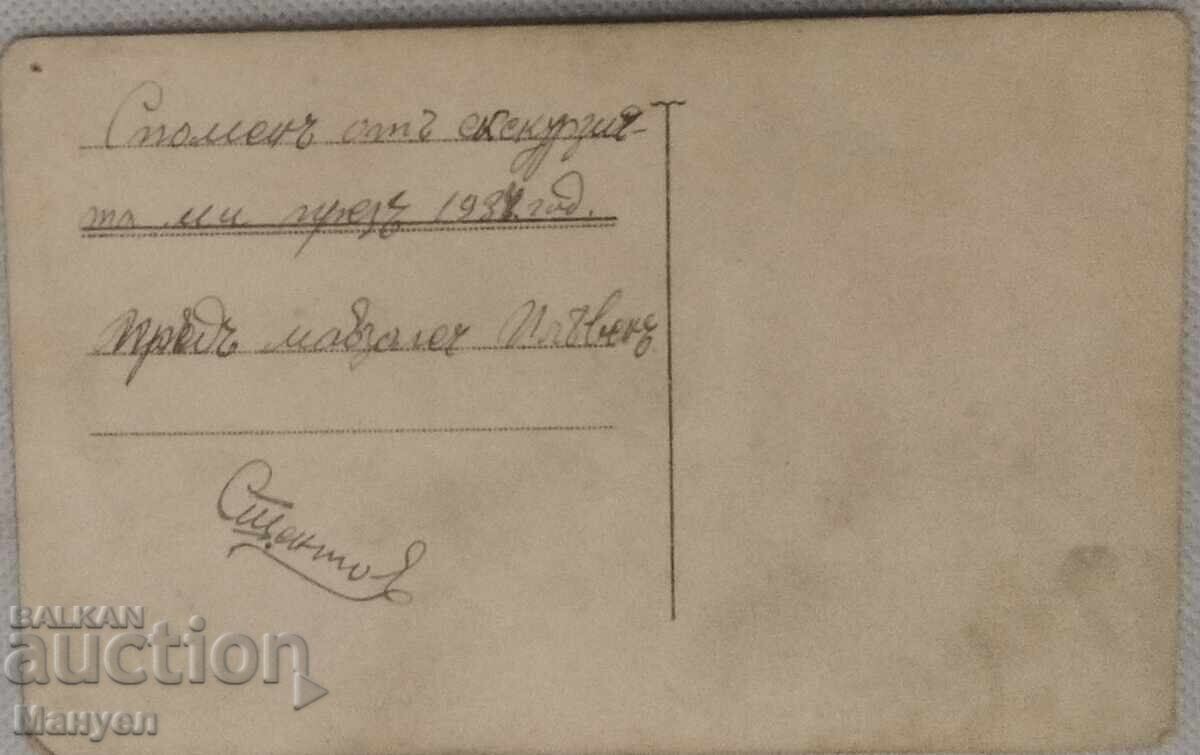 Споменъ отъ екскурзия-
та ми презъ 193 год.
Прѣдъ мавзолеч Плѣвенъ
BALKAN
auction
Мануел